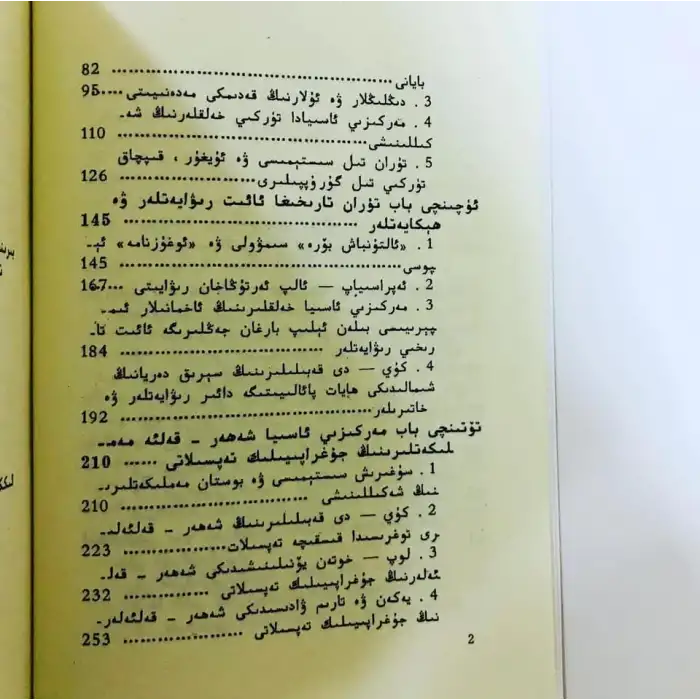 بايانى ........................................ 82
3 . دىڭلىڭلار ۋە ئۇلارنىڭ قەدىمكى مەدەنىيىتى ..... 95
4 . مەركىزىي ئاسىيادا تۈركىي خەلقلەرنىڭ شە-
كىللىنىشى ........................................ 110
5 . تۇران تىل سىستېمىسى ۋە ئۇيغۇر ، قىپچاق
تۈركىي تىل گۇرۇپپىلىرى ........................ 126
ئۈچىنچى باب تۇران تارىخىغا ئائىت رىۋايەتلەر ۋە
ھېكايەتلەر ........................................ 145
1 . «ئالتۇنباش بۆرە» سىمۋولى ۋە «ئوغۇزنامە» ئې-
پوسى ........................................ 145
2 . ئەپراسىياپ — ئالپ ئەرتۇڭاخان رىۋايىتى .... 167
3 . مەركىزىي ئاسىيا خەلقلىرىنىڭ ئاخمانىلار ئىم-
پېرىيىسى بىلەن ئېلىپ بارغان جەڭلىرىگە ئائىت تا-
رىخىي رىۋايەتلەر ............................ 184
4 . كۇي — دى قەبىلىلىرىنىڭ سېرىق دەريانىڭ
شىمالىدىكى ھايات پائالىيىتىگە دائىر رىۋايەتلەر ۋە
خاتىرىلەر ................................ 192
تۆتىنچى باب مەركىزىي ئاسىيا شەھەر - قەلئە مەم-
لىكەتلىرىنىڭ جۇغراپىيىلىك تەپسىلاتى ...... 210
1 . سۇغىرىش سىستېمىسى ۋە بوستان مەملىكەتلىرى-
نىڭ شەكىللىنىشى ............................ 210
2 . كۇي — دى قەبىلىلىرىنىڭ شەھەر - قەلئەلى-
رى توغرىسىدا قىسقىچە تەپسىلات ............ 223
3 . لوپ — خوتەن يۆنىلىنىشىدىكى شەھەر - قەل-
ئەلەرنىڭ جۇغراپىيىلىك تەپسىلاتى ............ 232
4 . يەكەن ۋە تارىم ۋادىسىدىكى شەھەر - قەلئەلەر-
نىڭ جۇغراپىيىلىك تەپسىلاتى ................ 253
2